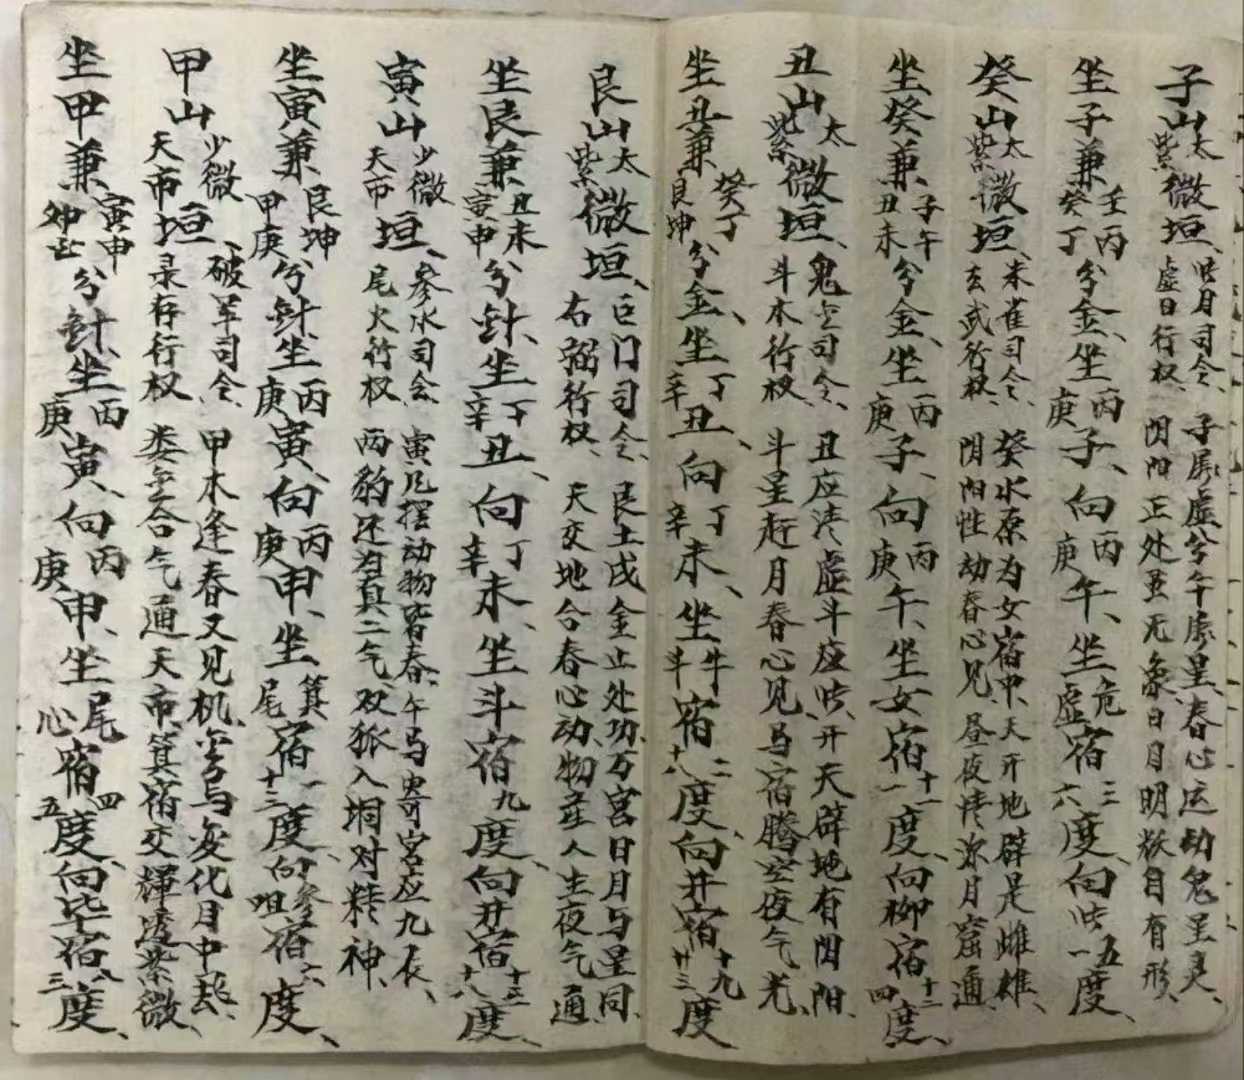 子山太紫微垣、毕月司令、虚日行权、子属虚兮午属星、春心运动鬼星灵、阴阳正处并无象日月明投自有形、
坐子兼壬丙癸丁兮金、坐丙庚子、向丙庚午、坐危虚宿三六度、向毕五一度、
癸山太紫微垣、朱雀司令、玄武行权、癸水原为女宿中、天开地辟是雌雄、阴阳性动春心见、昼夜情浓月窟通
坐癸兼子午丑未兮金、坐丙庚子、向丙庚午、坐女宿十一一度、向柳宿十二四度、
丑山太紫微垣、鬼金司令、斗木行权、丑应凑虚斗应毕、开天辟地有阴阳斗星赶月春心见、马宿腾空夜气光
坐丑兼癸丁艮坤兮金、坐丁辛丑、向丁辛未、坐牛斗宿二十八度、向井宿十九廿三度
艮山太紫微垣、巨门司令、右弼行权、艮土戌金止处功、万宫日月与星同、天交地合春心动、物产人生夜气通、
坐艮兼丑未寅申兮针、坐丁辛丑、向丁辛未、坐斗宿九度、向井宿十三十八度、
寅山少微天市垣、参水司令、尾火行权寅几摆动物皆春、午马寄宫应九辰、两豹还为真二气、双狐入垌对精神、
坐寅兼艮坤甲庚兮针、坐丙庚寅、向丙庚申、坐箕尾宿一十三度、向参咀宿六度、
甲山少微天市垣、破军司令、录存行权甲木逢春又见机、室与安化月中起、娄金合气通天市、箕宿交辉透紫微、
坐甲兼寅申卯酉兮针、坐丙庚寅、向丙庚申、坐尾心宿四五度、向毕宿八三度、